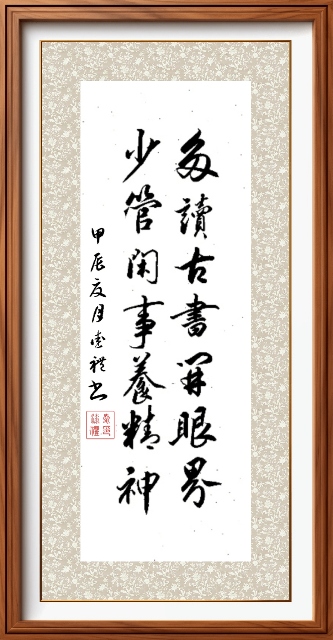 多讀古書開眼界
少管閑事養精神
甲辰夏月壺禮書